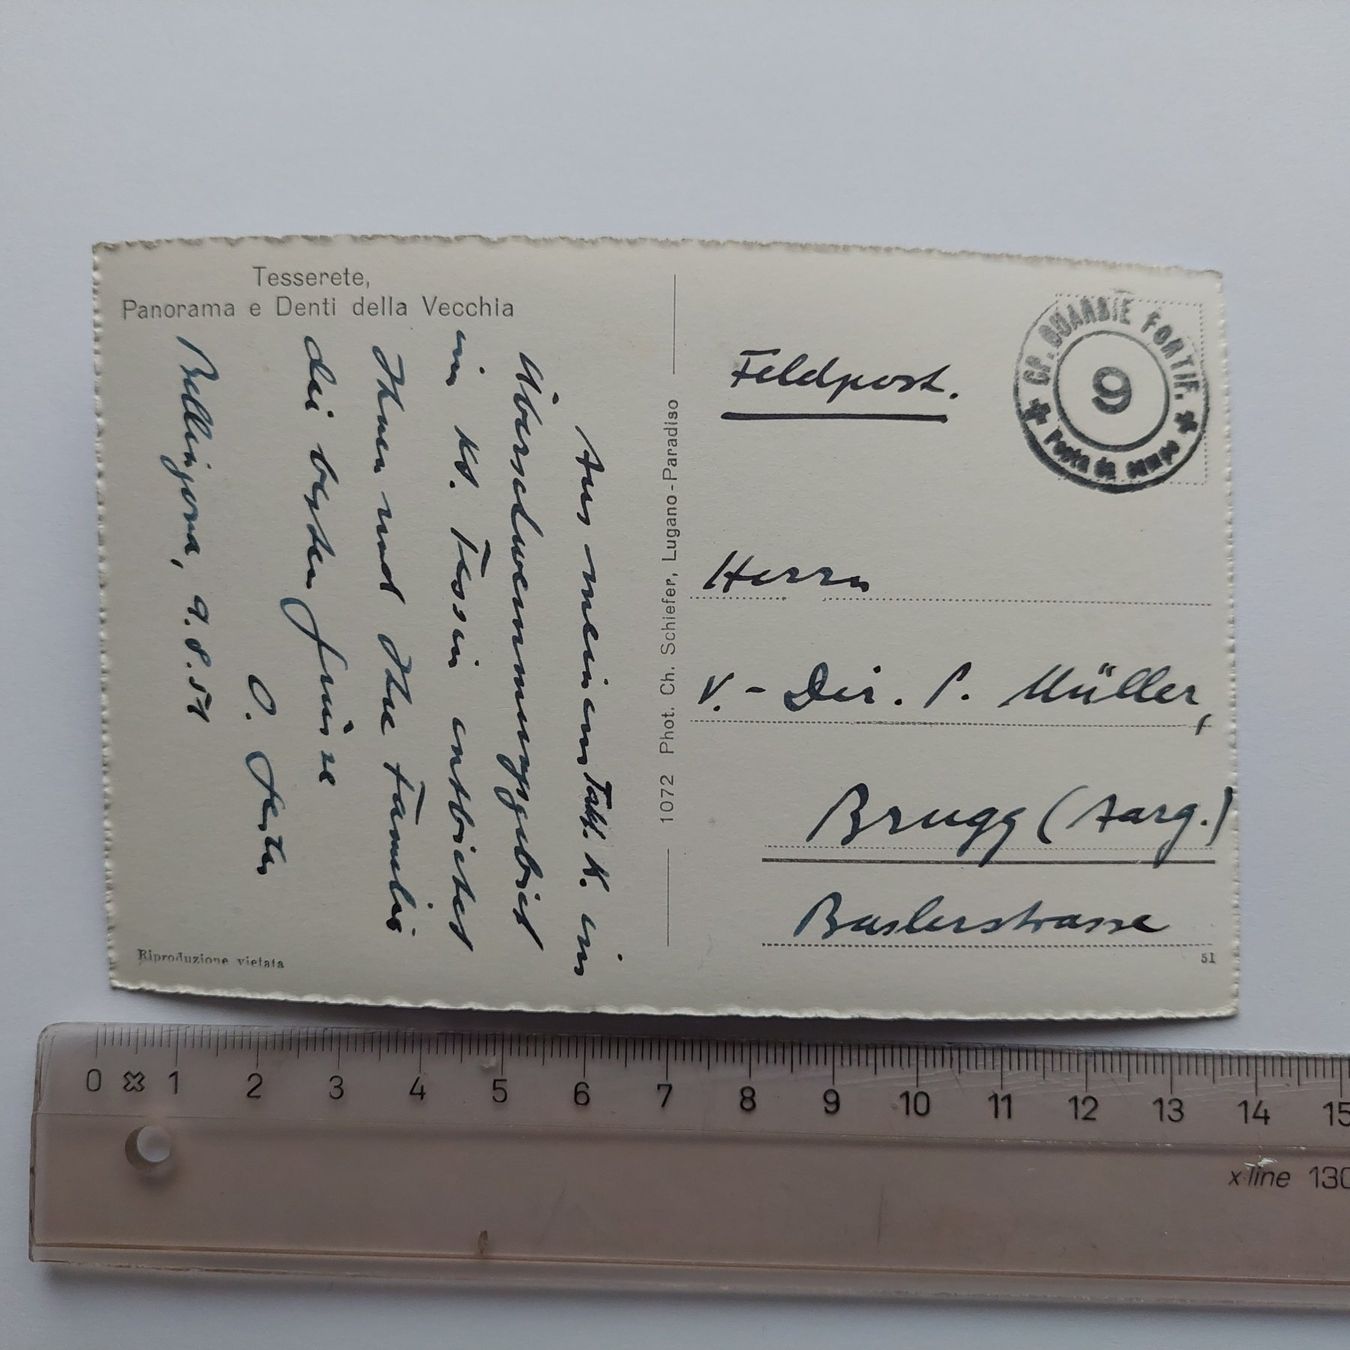 Tesserete,
Panorama e Denti della Vecchia
Aus meinem Takt. K. im
Überschwemmungsgebiet
im Kt. Tessin entbietet
Ihnen und Ihre Familie
die besten Grüsse
O.
Bellinzona, 9.8.51
Riproduzione vietata
1072 Phot. Ch. Schiefer, Lugano-Paradiso
Feldpost.
CP. GUARDIE FORTIF.
9
Posta da campo
Herrn
V.-Dir. P. Müller,
Brugg (Aarg.)
Baslerstrasse
51
0 1 2 3 4 5 6 7 8 9 10 11 12 13 14 15
x-line 130